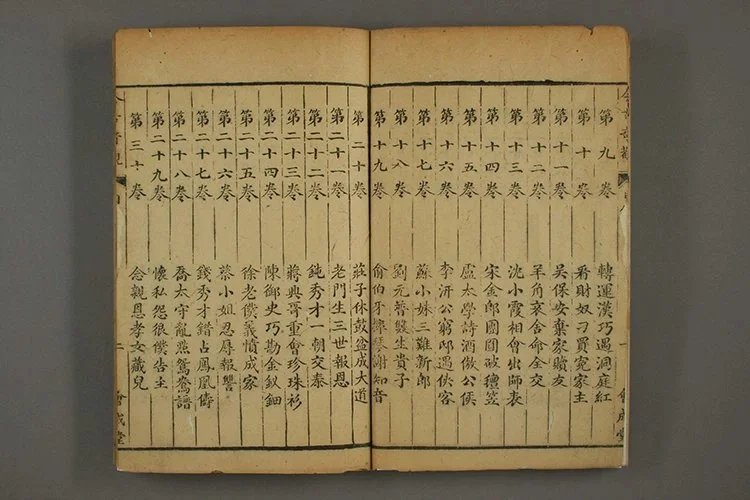 第九卷 轉運漢巧遇洞庭紅
第十卷 看財奴刁買冤家主
第十一卷 吳保安棄家贖友
第十二卷 羊角哀舍命全交
第十三卷 沈小霞相會出師表
第十四卷 宋金郎團圓破氊笠
第十五卷 盧太學詩酒傲公侯
第十六卷 李汧公窮邸遇俠客
第十七卷 蘇小妹三難新郎
第十八卷 劉元普雙生貴子
第十九卷 俞伯牙摔琴謝知音
第二十卷 莊子休鼓盆成大道
第二十一卷 老門生三世報恩
第二十二卷 鈍秀才一朝交泰
第二十三卷 蔣興哥重會珍珠衫
第二十四卷 陳御史巧勘金釵鈿
第二十五卷 徐老僕義憤成家
第二十六卷 蔡小姐忍辱報讐
第二十七卷 錢秀才錯占鳳凰儔
第二十八卷 喬太守亂點鴛鴦譜
第二十九卷 懷私怨狠僕告主
第三十卷 念親恩孝女藏兒
二 會成堂